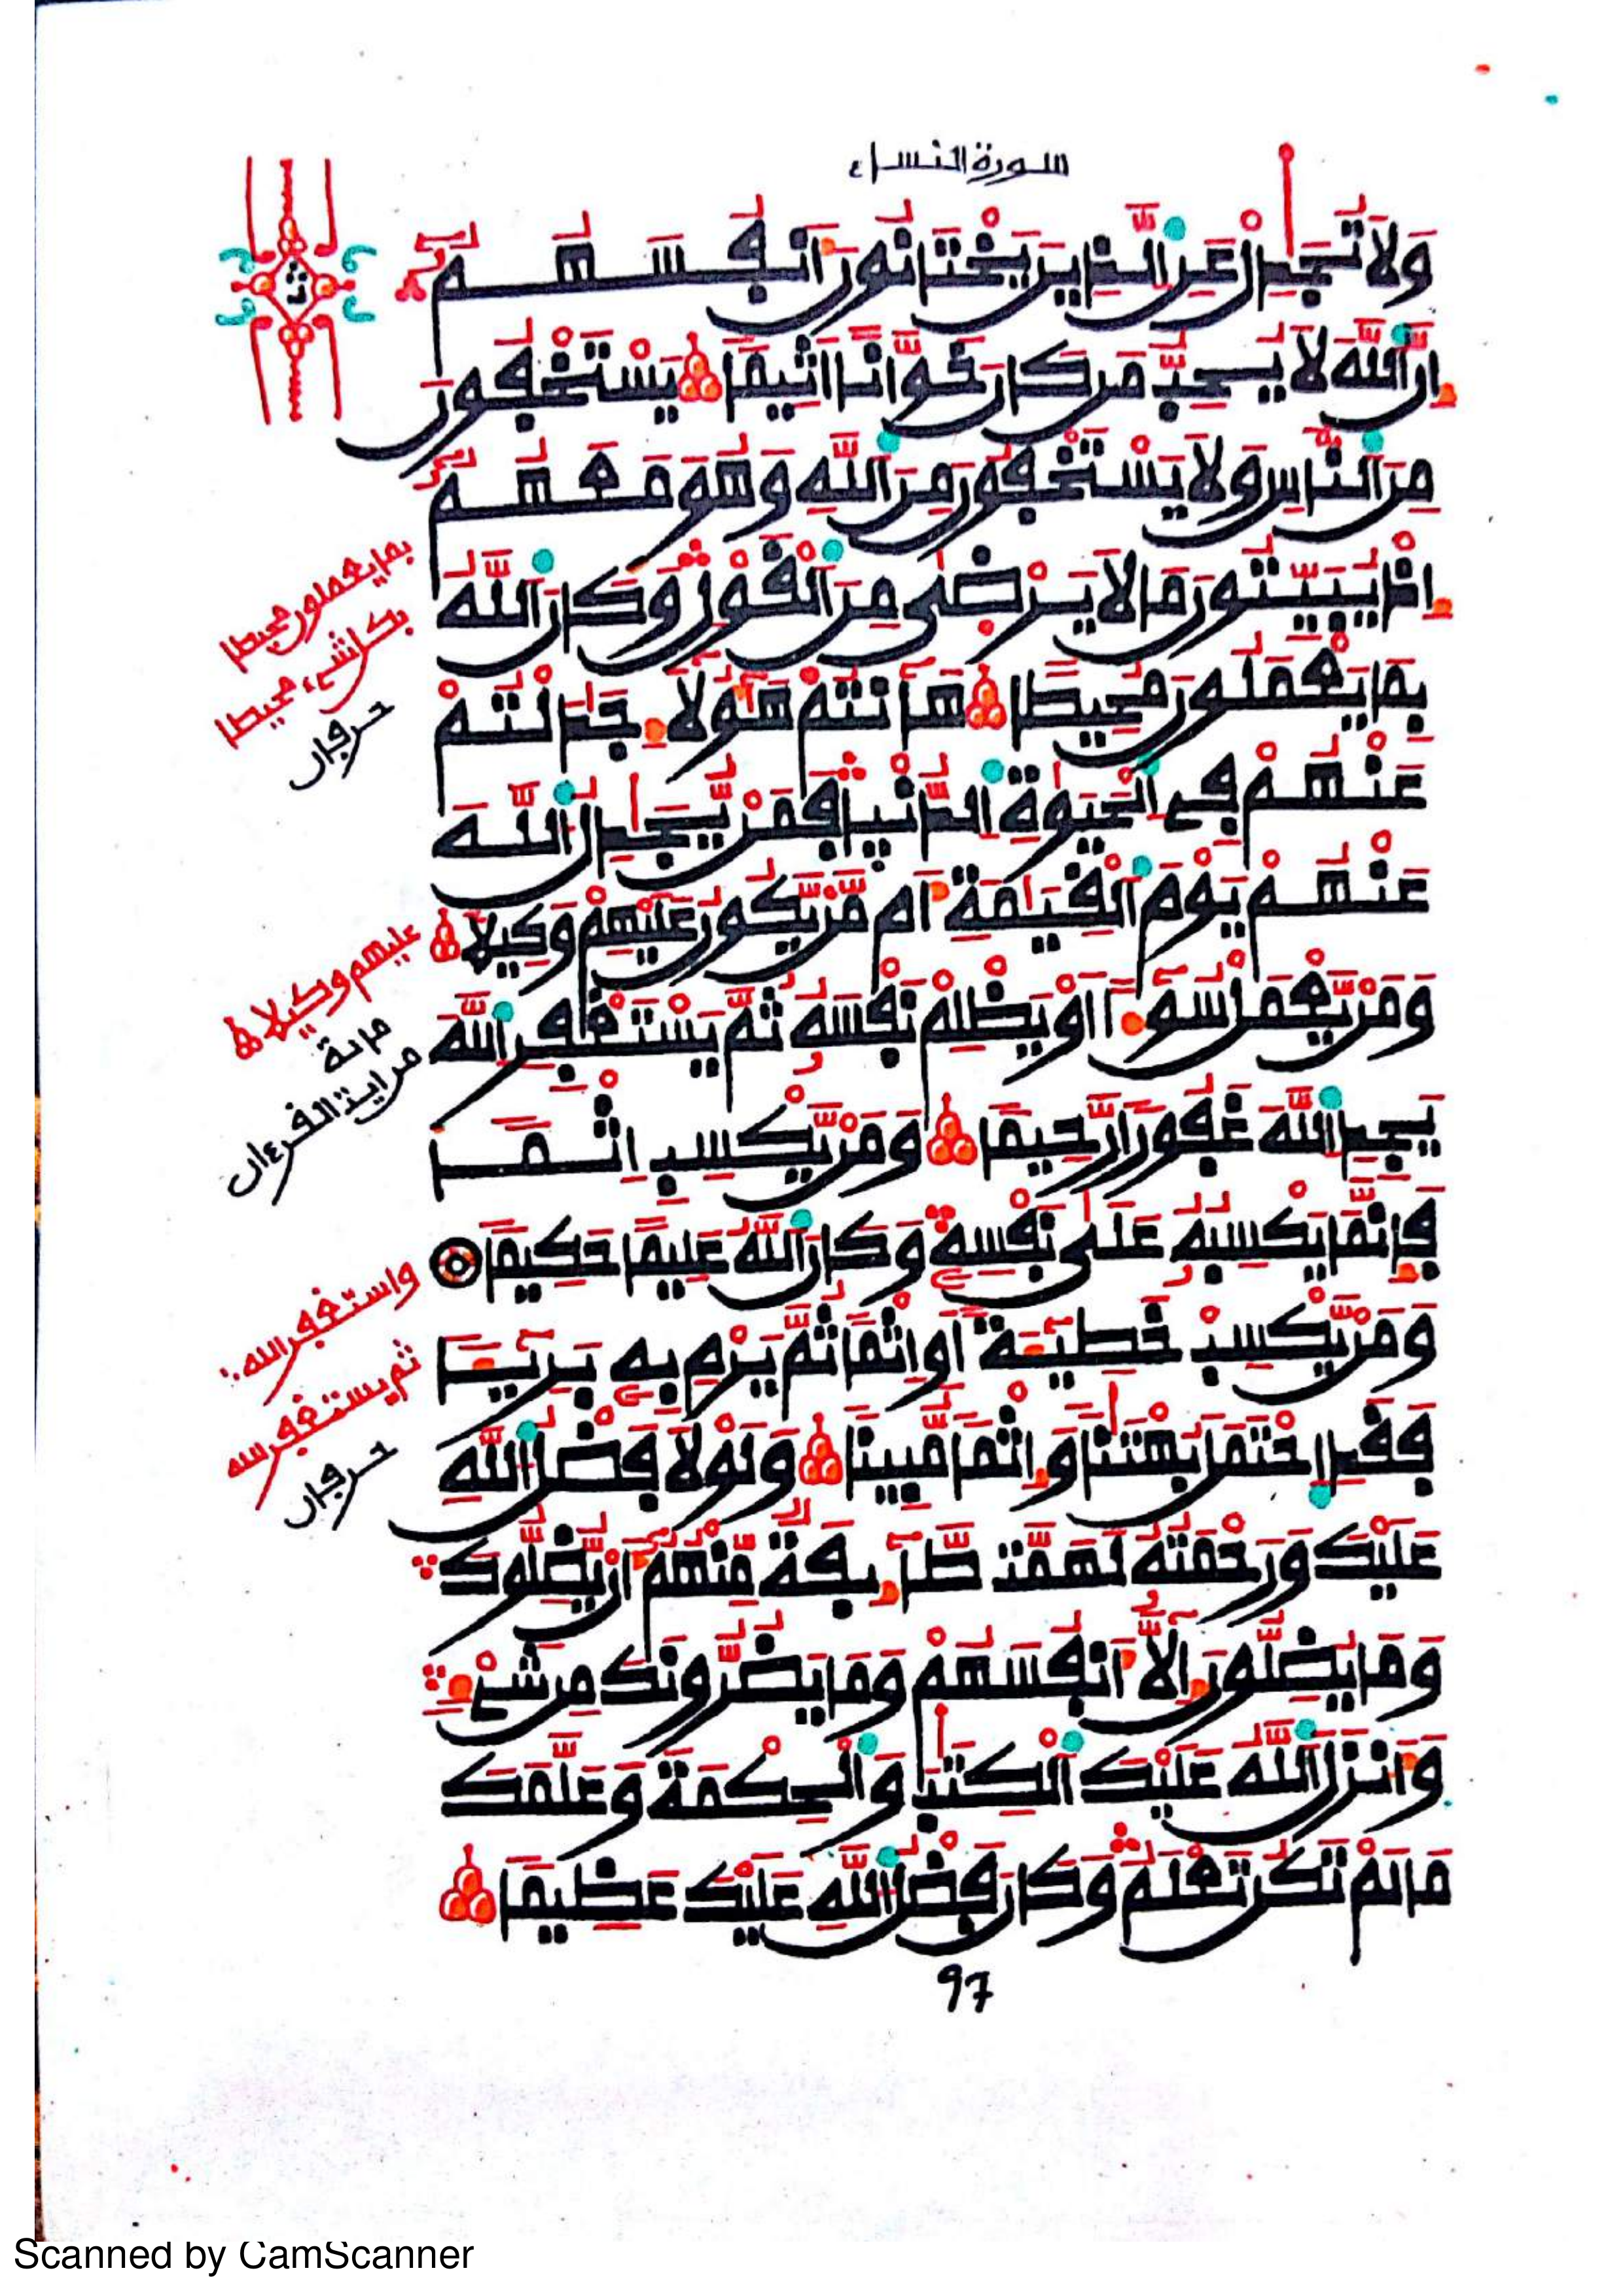 سورة النساء
وَلَا تُجَٰدِلْ عَنِ ٱلذِينَ يَخْتَانُونَ أَنفُسَهُمُۥٓ
إِنَّ ٱللَّهَ لَا يُحِبُّ مَن كَانَ خَوَّانًا اَثِيمًا يَسْتَخْفُونَ
مِنَ ٱلنَّاسِ وَلَا يَسْتَخْفُونَ مِنَ ٱللَّهِ وَهُوَ مَعَهُمُۥٓ
إِذْ يُبَيِّتُونَ مَا لَا يَرْضَىٰ مِنَ ٱلْقَوْلِ وَكَانَ ٱللَّهُ
بِمَا يَعْمَلُونَ مُحِيطًا هَٰٓأَنتُمْ هَٰٓؤُلَآءِ جَٰدَلْتُمْ
عَنْهُمْ فِي ٱلْحَيَوٰةِ ٱلدُّنْيَا فَمَنْ يُّجَٰدِلُ ٱللَّهَ
عَنْهُمْ يَوْمَ ٱلْقِيَٰمَةِ أَم مَّنْ يَّكُونُ عَلَيْهِمْ وَكِيلًا
وَمَنْ يَّعْمَلْ سُوٓءًا اَوْ يَظْلِمْ نَفْسَهُۥ ثُمَّ يَسْتَغْفِرِ ٱللَّهَ
يَجِدِ ٱللَّهَ غَفُورًا رَّحِيمًا وَمَنْ يَّكْسِبِ اِثْمًا
فَإِنَّمَا يَكْسِبُهُۥ عَلَىٰ نَفْسِهِۦ وَكَانَ ٱللَّهُ عَلِيمًا حَكِيمًا
وَمَنْ يَّكْسِبْ خَطِيٓـَٔةً اَوِ اِثْمًا ثُمَّ يَرْمِ بِهِۦ بَرِيٓـًٔا
فَقَدِ اِحْتَمَلَ بُهْتَٰنًا وَإِثْمًا مُّبِينًا وَلَوْلَا فَضْلُ ٱللَّهِ
عَلَيْكَ وَرَحْمَتُهُۥ لَهَمَّت طَّآئِفَةٌ مِّنْهُمُۥٓ أَنْ يُّضِلُّوكَ
وَمَا يُضِلُّونَ إِلَّآ أَنفُسَهُمْ وَمَا يَضُرُّونَكَ مِن شَيْءٍ
وَأَنزَلَ ٱللَّهُ عَلَيْكَ ٱلْكِتَٰبَ وَٱلْحِكْمَةَ وَعَلَّمَكَ
مَا لَمْ تَكُن تَعْلَمُ وَكَانَ فَضْلُ ٱللَّهِ عَلَيْكَ عَظِيمًا
97
بما يعملون محيطا
بكل شيء محيطا
حرفان
عليهم وكيلا
مائة
من اية القرءان
واستغفر الله
ثم يستغفر الله
حرفان
Scanned by CamScanner